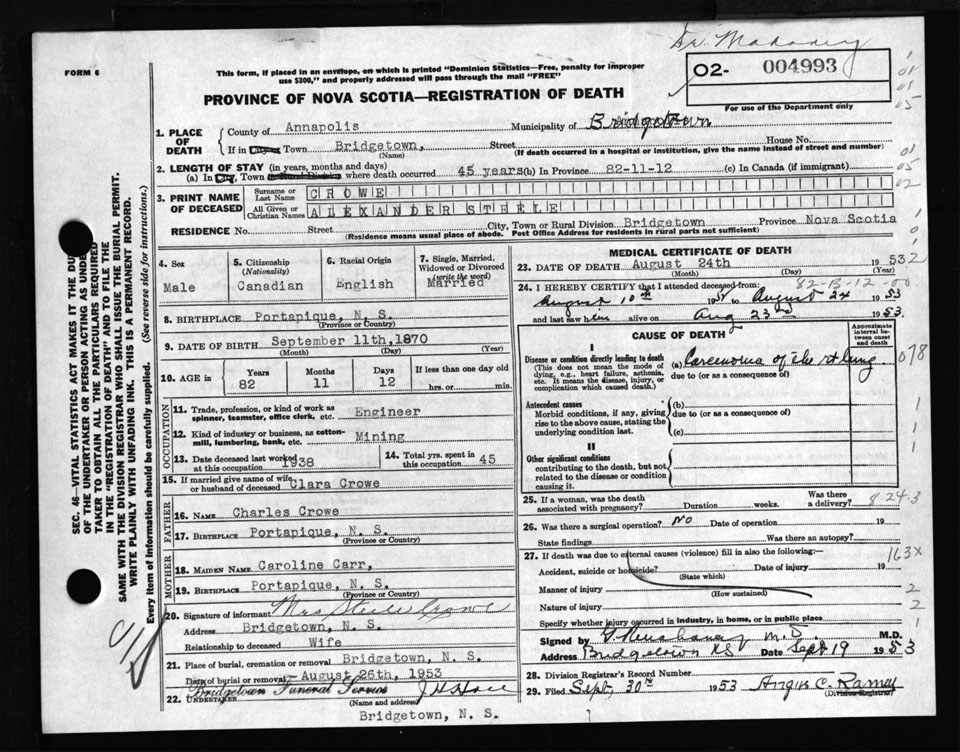 Dr. Mahoney
FORM 6
This form, if placed in an envelope, on which is printed "Dominion Statistics—Free, penalty for improper
use $300," and properly addressed will pass through the mail "FREE"
O2- 004993
For use of the Department only
PROVINCE OF NOVA SCOTIA—REGISTRATION OF DEATH
1. PLACE OF DEATH
County of Annapolis Municipality of Bridgetown
If in City or Town Bridgetown, Street House No.
(Name) (If death occurred in a hospital or institution, give the name instead of street and number)
2. LENGTH OF STAY (in years, months and days)
(a) In City, Town where death occurred 45 years (b) In Province 82-11-12 (c) In Canada (if immigrant)
3. PRINT NAME OF DECEASED
Surname or Last Name CROWE
All Given or Christian Names ALEXANDER STEELE
RESIDENCE No. Street City, Town or Rural Division Bridgetown Province Nova Scotia
(Residence means usual place of abode. Post Office Address for residents in rural parts not sufficient)
4. Sex Male
5. Citizenship (Nationality) Canadian
6. Racial Origin English
7. Single, Married, Widowed or Divorced (write the word) Married
8. BIRTHPLACE Portapique, N. S.
(Province or Country)
9. DATE OF BIRTH September 11th, 1870
(Month) (Day) (Year)
10. AGE in Years 82 Months 11 Days 12 If less than one day old hrs. or min.
OCCUPATION
11. Trade, profession, or kind of work as spinner, teamster, office clerk, etc. Engineer
12. Kind of industry or business, as cotton-mill, lumbering, bank, etc. Mining
13. Date deceased last worked at this occupation 1938
14. Total yrs. spent in this occupation 45
15. If married give name of wife or husband of deceased Clara Crowe
FATHER
16. NAME Charles Crowe
17. BIRTHPLACE Portapique, N. S.
(Province or Country)
MOTHER
18. MAIDEN NAME Caroline Carr,
19. BIRTHPLACE Portapique, N. S.
(Province or Country)
20. Signature of informant Mrs Steele Crowe
Address Bridgetown, N. S.
Relationship to deceased Wife
21. Place of burial, cremation or removal Bridgetown, N. S.
Date of burial or removal August 26th, 1953
22. UNDERTAKER Bridgetown Funeral Service
(Name and address)
Bridgetown, N. S.
MEDICAL CERTIFICATE OF DEATH
23. DATE OF DEATH August 24th 1953
(Month) (Day) (Year)
82-B-12-00
24. I HEREBY CERTIFY that I attended deceased from:
August 10th to August 24 1953
and last saw him alive on Aug 23rd 1953.
CAUSE OF DEATH
Approximate interval between onset and death
I
Disease or condition directly leading to death
(This does not mean the mode of dying, e.g., heart failure, asthenia, etc. It means the disease, injury, or complication which caused death.)
(a) Carcinoma of the rt lung.
due to (or as a consequence of)
Antecedent causes
Morbid conditions, if any, giving rise to the above cause, stating the underlying condition last.
(b)
due to (or as a consequence of)
(c)
II
Other significant conditions
contributing to the death, but not related to the disease or condition causing it.
25. If a woman, was the death associated with pregnancy? Duration weeks. Was there a delivery?
8-24-3
26. Was there a surgical operation? No Date of operation 19
State findings Was there an autopsy?
163X
27. If death was due to external causes (violence) fill in also the following:
Accident, suicide or homicide? Date of injury 19
(State which)
Manner of injury
(How sustained)
Nature of injury
Specify whether injury occurred in industry, in home, or in public place
Signed by M.D. M.D.
Address Bridgetown NS Date Sept 19 1953
28. Division Registrar's Record Number
29. Filed Sept 30th 1953 Angus C. Ramey
(Division Registrar)
SEC. 46—VITAL STATISTICS ACT MAKES IT THE DUTY
OF THE UNDERTAKER OR PERSON ACTING AS UNDERTAKER
TO OBTAIN ALL THE PARTICULARS REQUIRED
IN THE "REGISTRATION OF DEATH" AND TO FILE THE
SAME WITH THE DIVISION REGISTRAR WHO SHALL ISSUE THE BURIAL PERMIT.
WRITE PLAINLY WITH UNFADING INK. THIS IS A PERMANENT RECORD.
Every item of information should be carefully supplied. (See reverse side for instructions.)